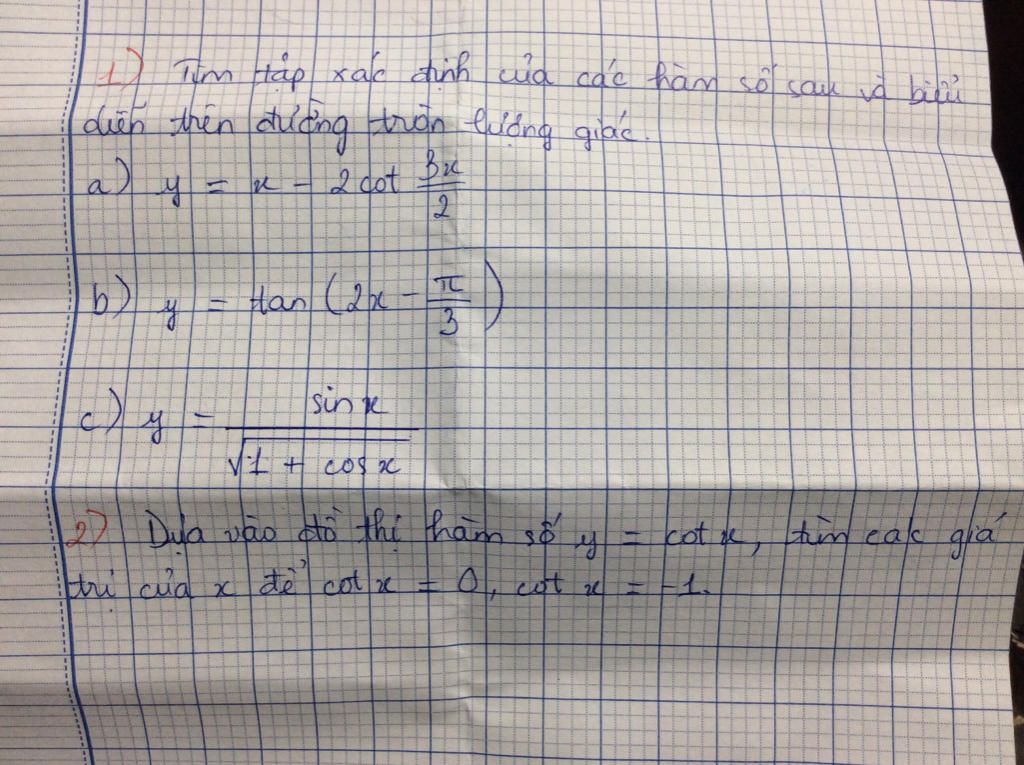 1) Tìm tập xác định của các hàm số sau và biểu
diễn trên đường tròn lượng giác.
a) y = x - 2 cot 3x/2
b) y = tan (2x - π/3)
c) y = sin x / √(1 + cos x)
2) Dựa vào đồ thị hàm số y = cot x, tìm các giá
trị của x để cot x = 0, cot x = -1.